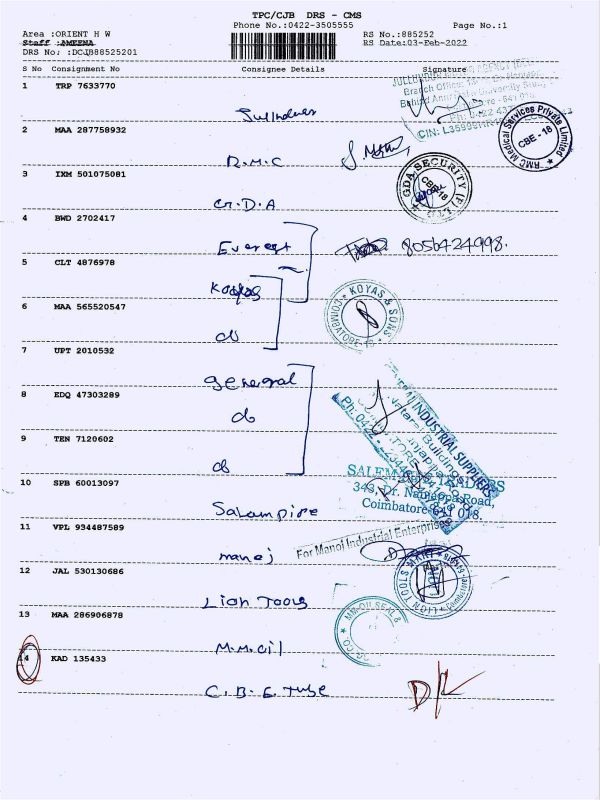 TPC/CJB DRS - CMS
Phone No.:0422-3505555 Page No.:1
Area :ORIENT H W RS No.:885252
Staff :AMEENA RS Date:03-Feb-2022
DRS No; :DCJB88525201
S No Consignment No Consignee Details Signature
1 TRP 7633770
Branch Office
CIN:
2 MAA 287758932
R.M.C
RMC Medical Services Private Limited
CBE - 18
3 IXM 501075081
G.D.A
GDA SECURITY (P) LTD
CBE-18
4 BWD 2702417
Everest 8056424998.
5 CLT 4876978
Koyas
KOYAS & SONS
COIMBATORE-18
6 MAA 565520547
do
7 UPT 2010532
general
8 EDQ 47303289
do
INDUSTRIAL SUPPLIERS
9 TEN 7120602
do
10 SPB 60013097
343, Dr. Nanjappa Road,
Coimbatore-641 018.
Salempipe
11 VPL 934487589
For Manoj Industrial Enterprises
manoj
12 JAL 530130686
LION TOOLS MART
Lion Tools
13 MAA 286906878
MM OIL SEAL &
M.M.oil
14 KAD 135433
C.B.E Tube
D/L